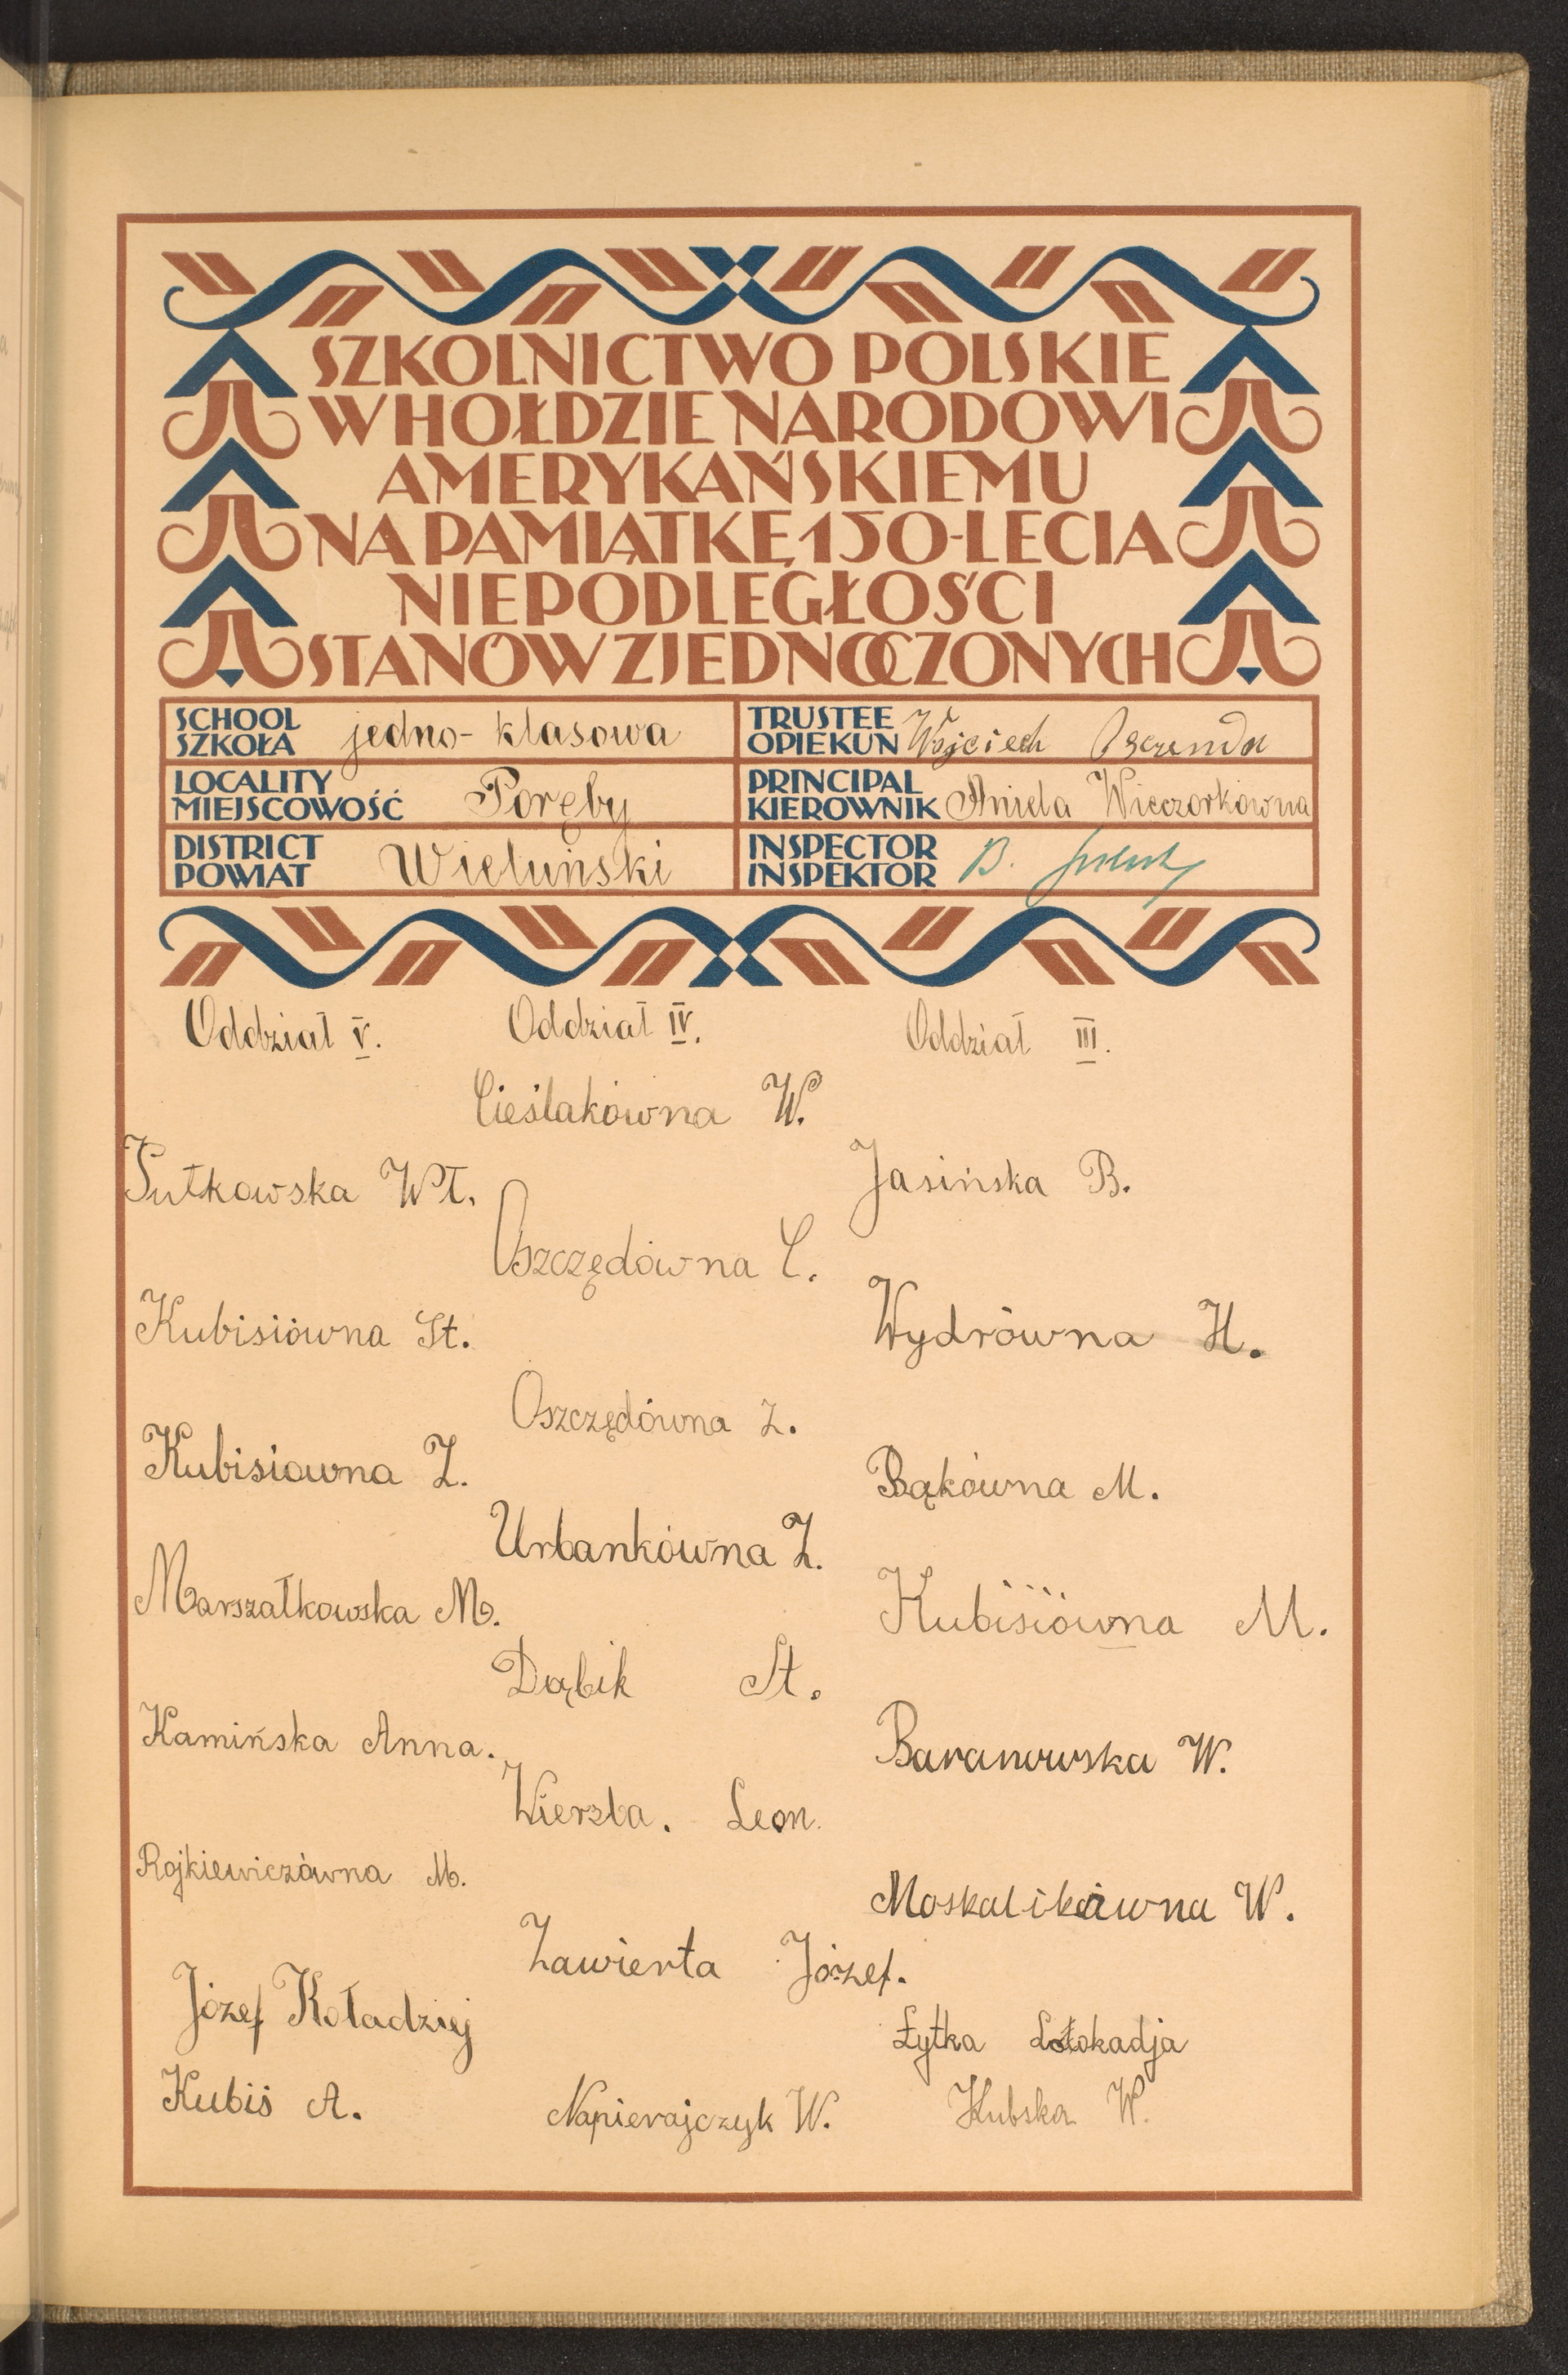 SZKOLNICTWO POLSKIE
W HOŁDZIE NARODOWI
AMERYKAŃSKIEMU
NA PAMIĄTKĘ 150-LECIA
NIEPODLEGŁOŚCI
STANÓW ZJEDNOCZONYCH
SCHOOL
SZKOŁA jedno-klasowa
TRUSTEE
OPIEKUN Wojciech
LOCALITY
MIEJSCOWOŚĆ Poręby
PRINCIPAL
KIEROWNIK Aniela Wieczorkówna
DISTRICT
POWIAT Wieluński
INSPECTOR
INSPEKTOR B.
Oddział V.
Sutkowska Wł.
Kubisiówna St.
Kubisiowna Z.
Marszałkowska M.
Kamińska Anna.
Rojkiewiczówna M.
Józef Koładziej
Kubiś A.
Oddział IV.
Cieślakówna W.
Oszczędówna C.
Oszczędówna Z.
Urbankówna Z.
Dąbik St.
Wierzba. Leon.
Zawierta Józef.
Napierajczyk W.
Oddział III.
Jasińska B.
Wydrówna H.
Bąkówna M.
Kubisiówna M.
Baranowska W.
Moskalikówna W.
Łytka
Kubska W.